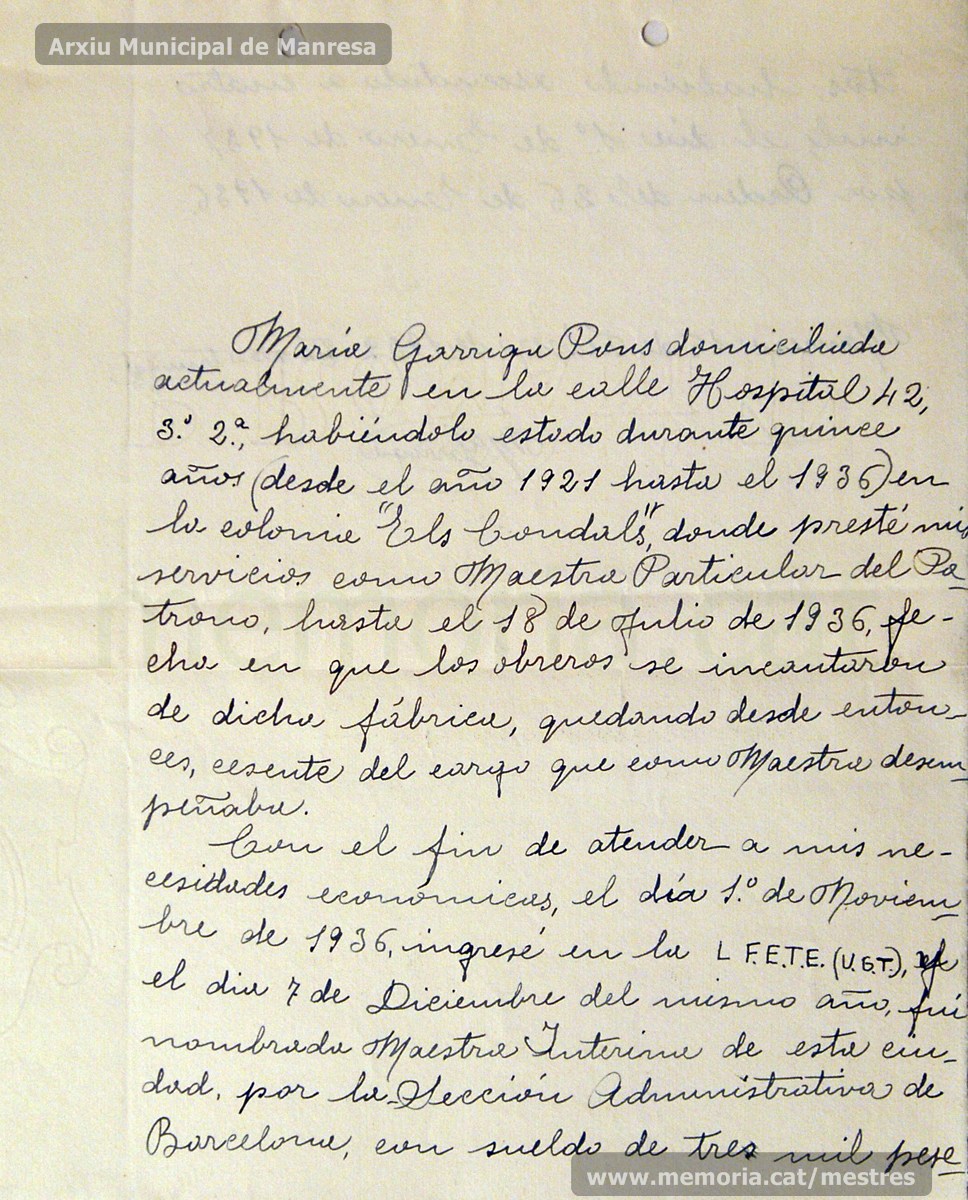 Arxiu Municipal de Manresa
María Garriga Pons domiciliada
actualmente en la calle Hospital 42,
3.º 2.ª, habiéndolo estado durante quince
años (desde el año 1921 hasta el 1936) en
la colonia "Els Condals", donde presté mis
servicios como Maestra Particular del Pa-
trono, hasta el 18 de Julio de 1936, fe-
cha en que los obreros se incautaron
de dicha fábrica, quedando desde enton-
ces, cesente del cargo que como Maestra desem-
peñaba.
Con el fin de atender a mis ne-
cesidades económicas, el día 1.º de Noviem-
bre de 1936, ingresé en la L F.E.T.E. (U.G.T.), y
el dia 7 de Diciembre del mismo año, fuí
nombrada Maestra Interina de esta ciu-
dad, por la Sección Administrativa de
Barcelona, con sueldo de tres mil pese-
www.memoria.cat/mestres